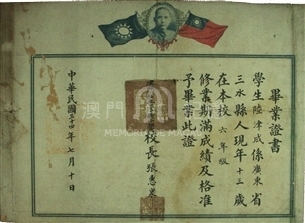 畢業證書
學生陸津成係廣東省
三水縣人現年十三歲
在本校六年級
修業期滿成績及格准
予畢業此證
校長張惠泉
中華民國三十四年七月十日
澳門
MEMORY MACAU